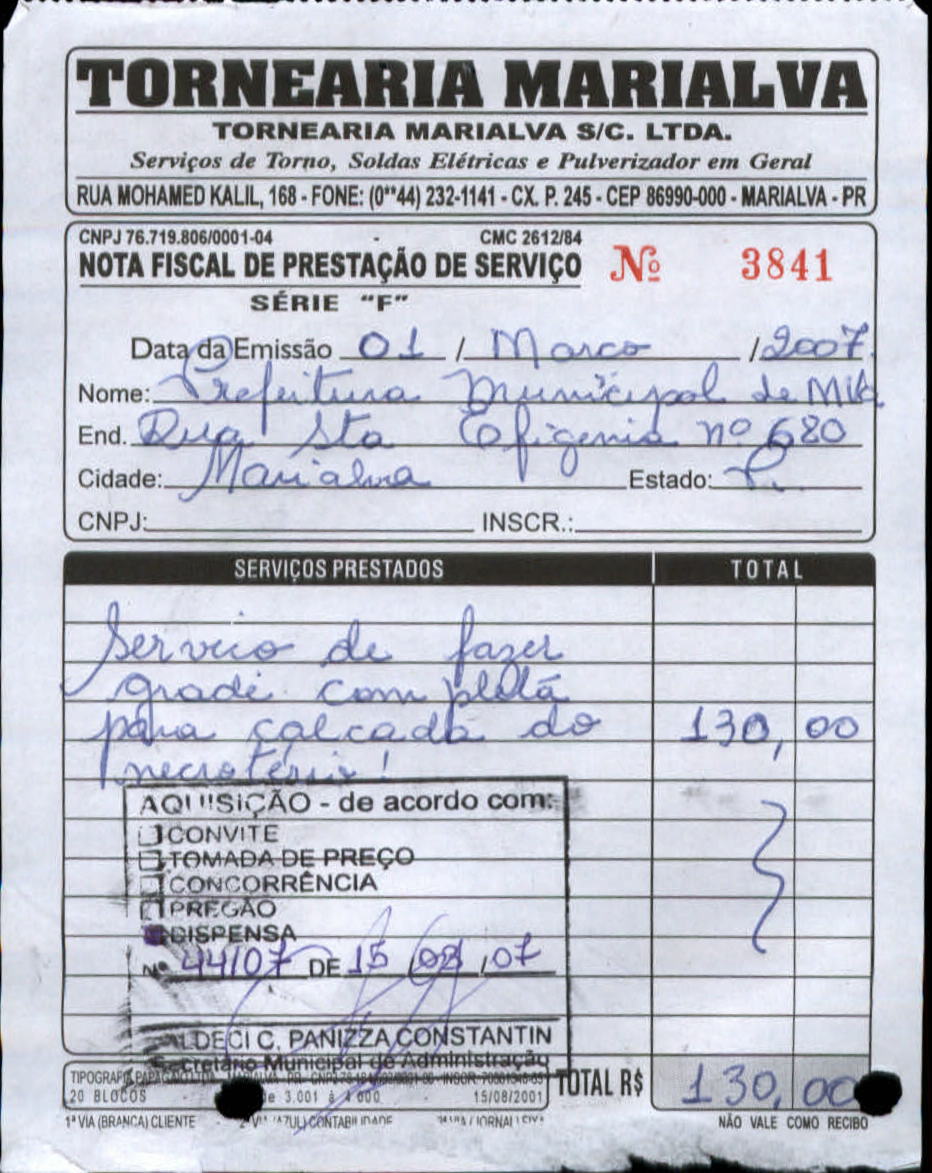 TORNEARIA MARIALVA
TORNEARIA MARIALVA S/C. LTDA.
Serviços de Torno, Soldas Elétricas e Pulverizador em Geral
RUA MOHAMED KALIL, 168 - FONE: (0**44) 232-1141 - CX. P. 245 - CEP 86990-000 - MARIALVA - PR
CNPJ 76.719.806/0001-04 - CMC 2612/84
NOTA FISCAL DE PRESTAÇÃO DE SERVIÇO Nº 3841
SÉRIE "F"
Data da Emissão 01 / Marco / 2007
Nome: Prefeitura Municipal de
End. Rua Sta Efigenia nº 680
Cidade: Marialva Estado:
CNPJ: INSCR.:
SERVIÇOS PRESTADOS TOTAL
Servico de fazer
grade completa
para calcada do 130,00
necrotério!
AQUISIÇÃO - de acordo com:
CONVITE
TOMADA DE PREÇO
CONCORRÊNCIA
PREGÃO
DISPENSA
Nº 44/07 DE 15 / 07
ALDECI C. PANIZZA CONSTANTIN
Secretário Municipal de Administração
TIPOGRAFIA
20 BLOCOS de 3.001 à 4.000 15/08/2001 TOTAL R$ 130,00
1ª VIA (BRANCA) CLIENTE 2ª VIA (AZUL) CONTABILIDADE NÃO VALE COMO RECIBO